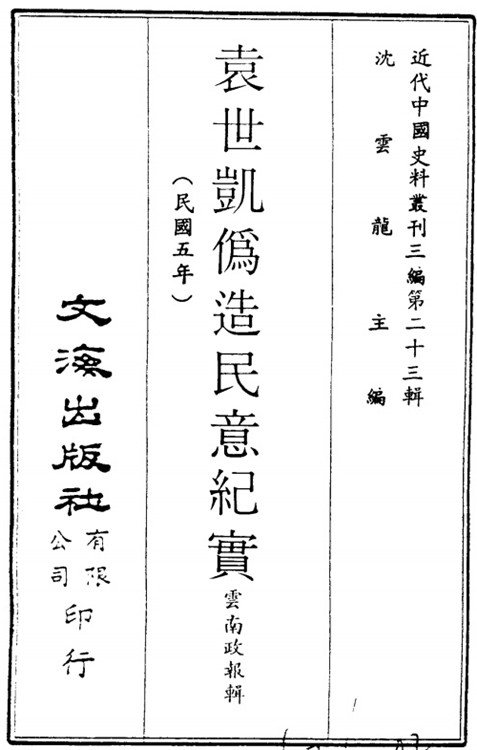 近代中國史料叢刊三編第二十三輯
沈雲龍主編
袁世凱偽造民意紀實
雲南政報輯
（民國五年）
文海出版社
有限
公司
印行